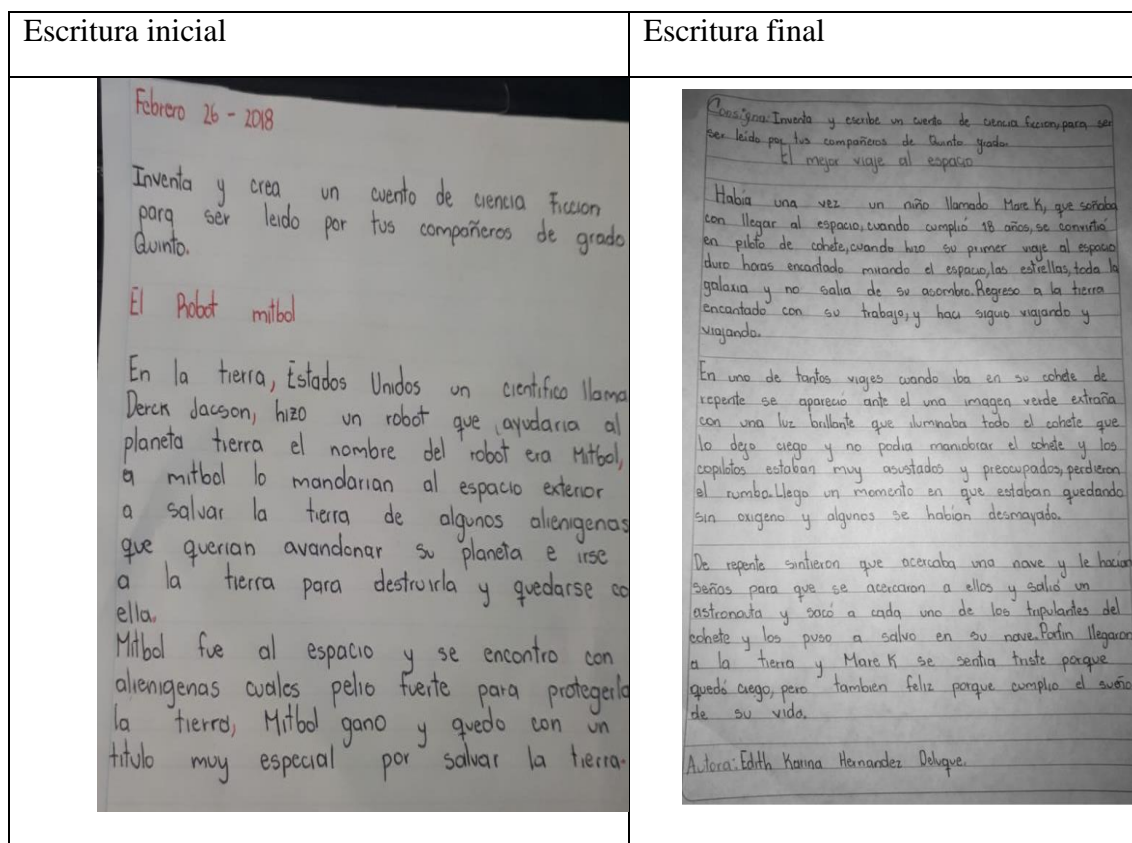 Escritura inicial
Febrero 26 - 2018
Inventa y crea un cuento de ciencia Ficcion
para ser leido por tus compañeros de grado
Quinto.
El Robot mitbol
En la tierra, Estados Unidos un cientifico llama
Derck Jacson, hizo un robot que ayudaria al
planeta tierra el nombre del robot era Mitbol,
a mitbol lo mandarian al espacio exterior
a salvar la tierra de algunos alienigenas
que querian avandonar su planeta e irse
a la tierra para destruirla y quedarse co
ella.
Mitbol fue al espacio y se encontro con
alienigenas cuales pelio fuerte para protegerla
la tierra, Mitbol gano y quedo con un
titulo muy especial por salvar la tierra.
Escritura final
Consigna: Inventa y escribe un cuento de ciencia ficcion, para ser
ser leido por tus compañeros de Quinto grado.
El mejor viaje al espacio
Habia una vez un niño llamado Mare K, que soñaba
con llegar al espacio, cuando cumplió 18 años, se convirtió
en piloto de cohete, cuando hizo su primer viaje al espacio
duro horas encantado mirando el espacio, las estrellas, toda la
galaxia y no salia de su asombro. Regreso a la tierra
encantado con su trabajo, y haci siguio viajando y
viajando.
En uno de tantos viajes cuando iba en su cohete de
repente se apareció ante el una imagen verde extraña
con una luz brillante que iluminaba todo el cohete que
lo dejo ciego y no podia maniobrar el cohete y los
copilotos estaban muy asustados y preocupados, perdieron
el rumbo. Llego un momento en que estaban quedando
sin oxigeno y algunos se habian desmayado.
De repente sintieron que acercaba una nave y le hacian
señas para que se acercaron a ellos y salió un
astronauta y sacó a cada uno de los tripulantes del
cohete y los puso a salvo en su nave. Porfin llegaron
a la tierra y Mare K se sentia triste porque
quedó ciego, pero tambien feliz porque cumplio el sueño
de su vida.
Autora: Edith Karina Hernandez Deluque.